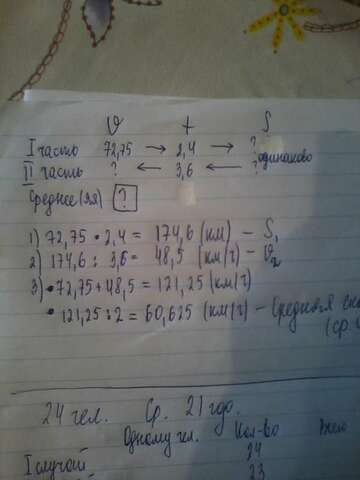 υ t S
I часть 72,75 → 2,4 → ?
одинаково
II часть ? ← 3,6 ← ?
Среднее(яя) ?
1) 72,75 • 2,4 = 174,6 (км) – S₁
2) 174,6 : 3,6 = 48,5 (км/ч) – υ₂
3) • 72,75 + 48,5 = 121,25 (км/ч)
• 121,25 : 2 = 60,625 (км/ч) – Средняя
(ср.
24 чел. Ср. 21 год.
Одному чел. Кол-во
I случай 24
23